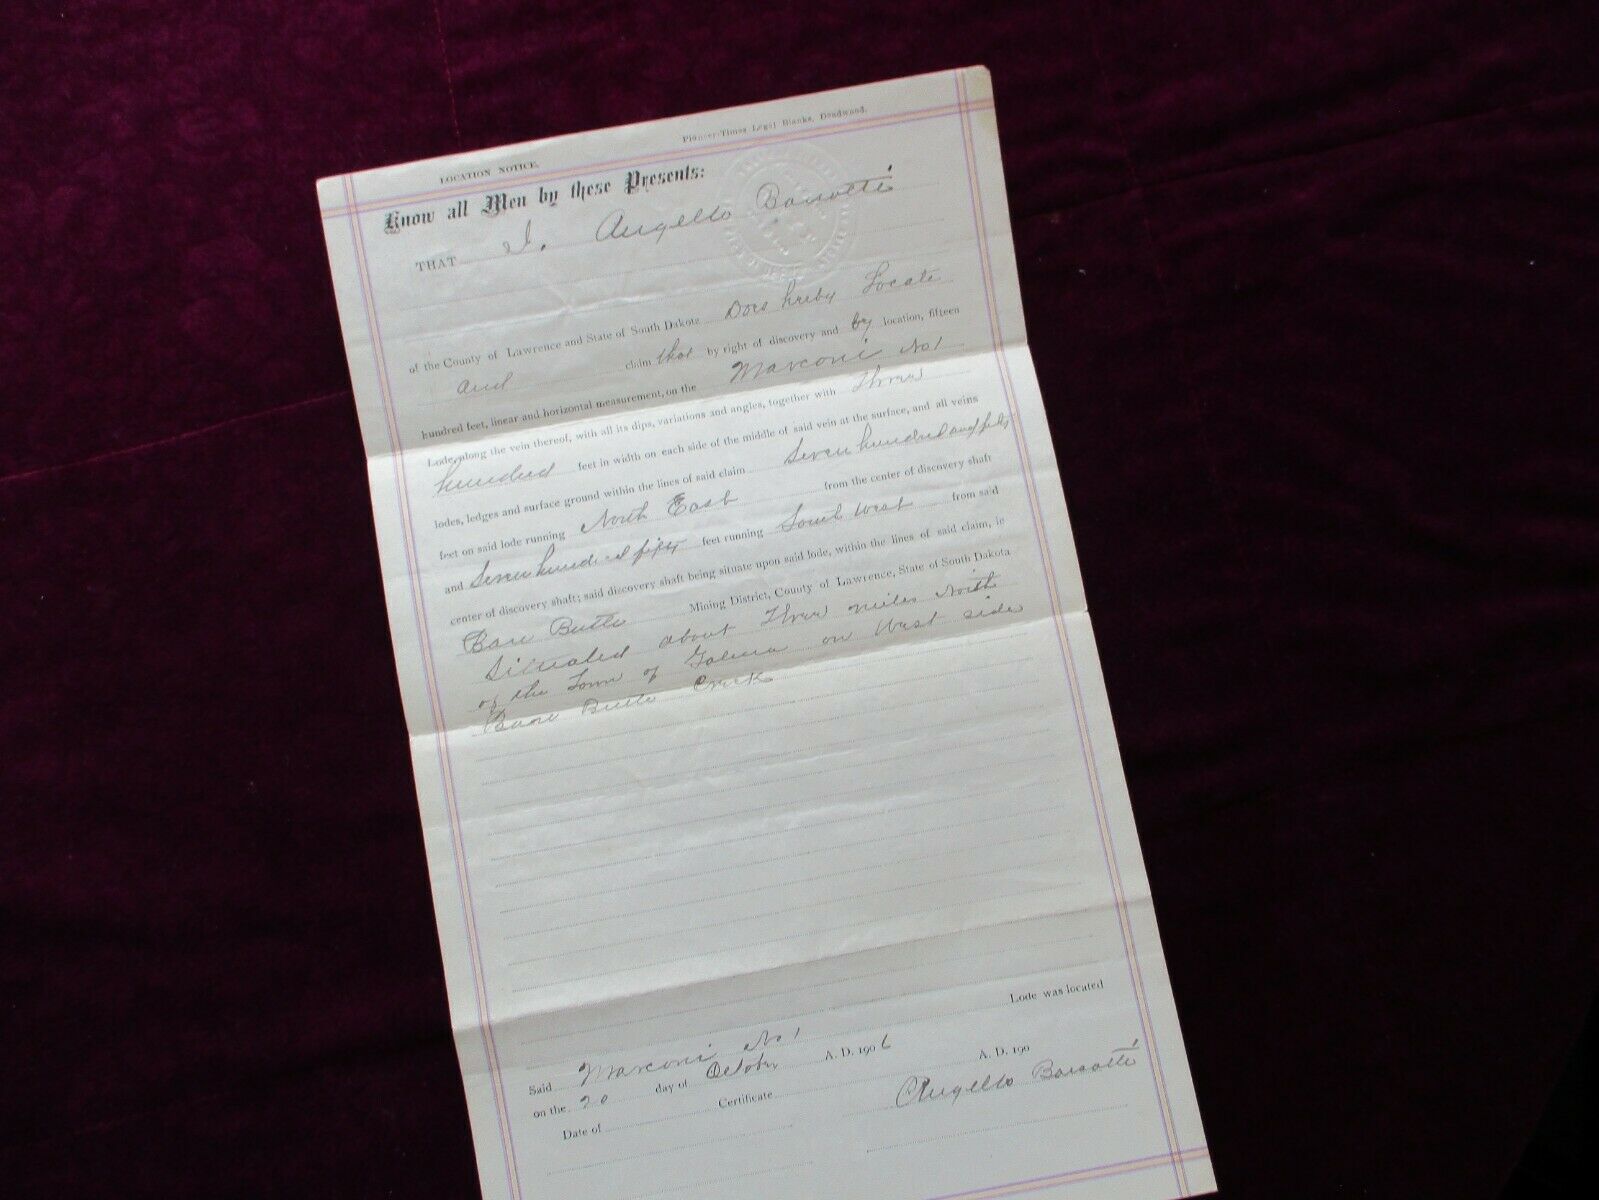 LOCATION NOTICE.
Pioneer-Times Legal Blanks, Deadwood.
Know all Men by these Presents:
THAT I. Angello Barsotti
of the County of Lawrence and State of South Dakota Does hreby Locate
and claim that by right of discovery and by location, fifteen
hundred feet, linear and horizontal measurement, on the Marconi No 1
Lode, along the vein thereof, with all its dips, variations and angles, together with Three
hundred feet in width on each side of the middle of said vein at the surface, and all veins
lodes, ledges and surface ground within the lines of said claim Seven hundred and fifty
feet on said lode running North East from the center of discovery shaft
and Seven hundred fifty feet running South West from said
center of discovery shaft; said discovery shaft being situate upon said lode, within the lines of said claim, ie
Bare Butte Mining District, County of Lawrence, State of South Dakota
Situated about Three miles North
of the Town of Galena on West side
Bare Butte Creek
Said Marconi No 1 Lode was located
on the 20 day of October A. D. 1906
Date of Certificate A. D. 190
Angello Barsotti